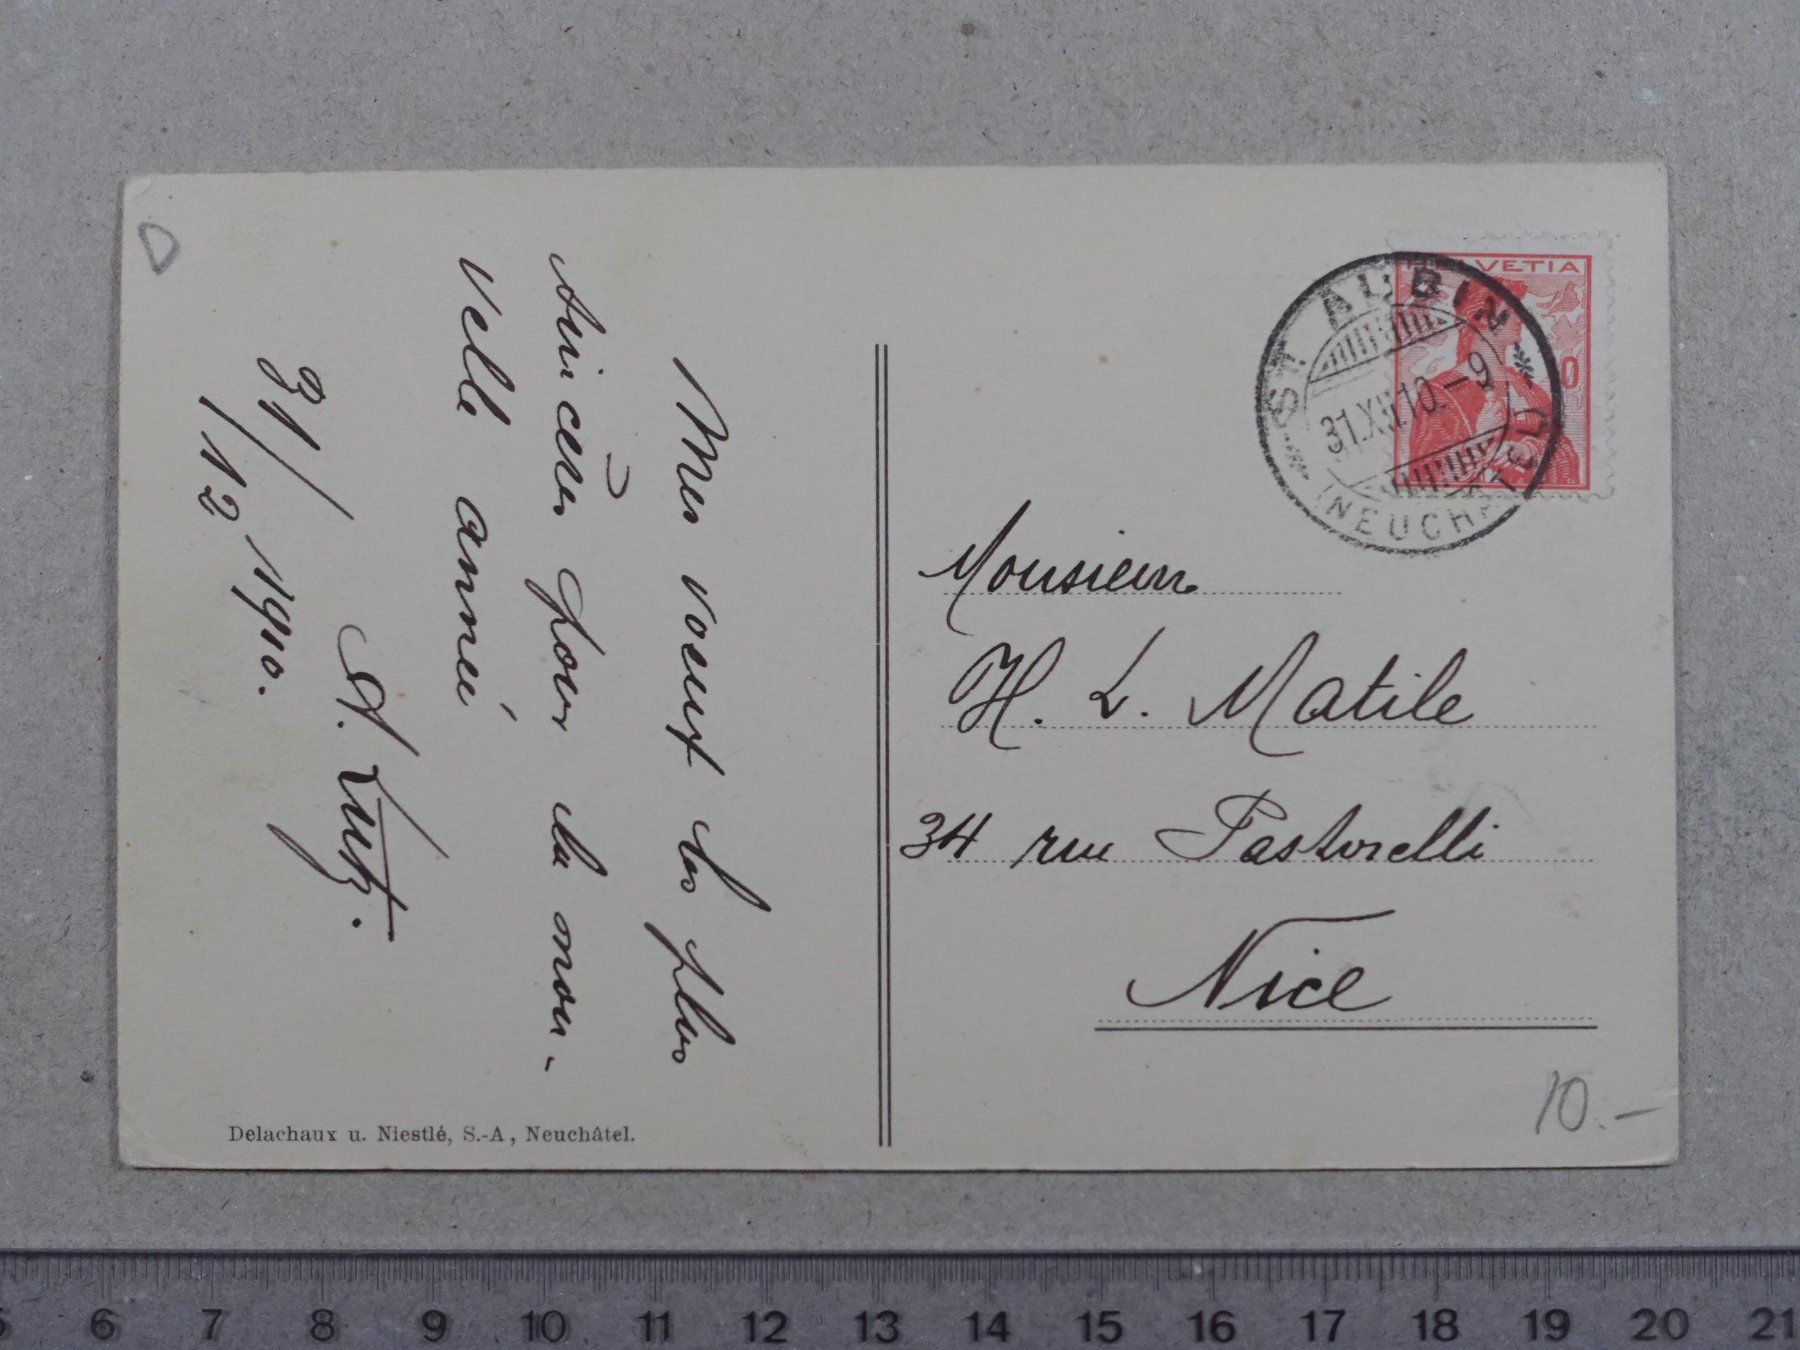 Mes voeux les plus
sincères pour la nou-
velle année
A. Lutz.
31/12 1910.
Delachaux u. Niestlé, S.-A, Neuchâtel.
HELVETIA
10
ST AUBIN
31.XII.10.-9
(NEUCHÂTEL)
Monsieur
H. L. Matile
34 rue Pastorelli
Nice
10.-
D
5 6 7 8 9 10 11 12 13 14 15 16 17 18 19 20 21